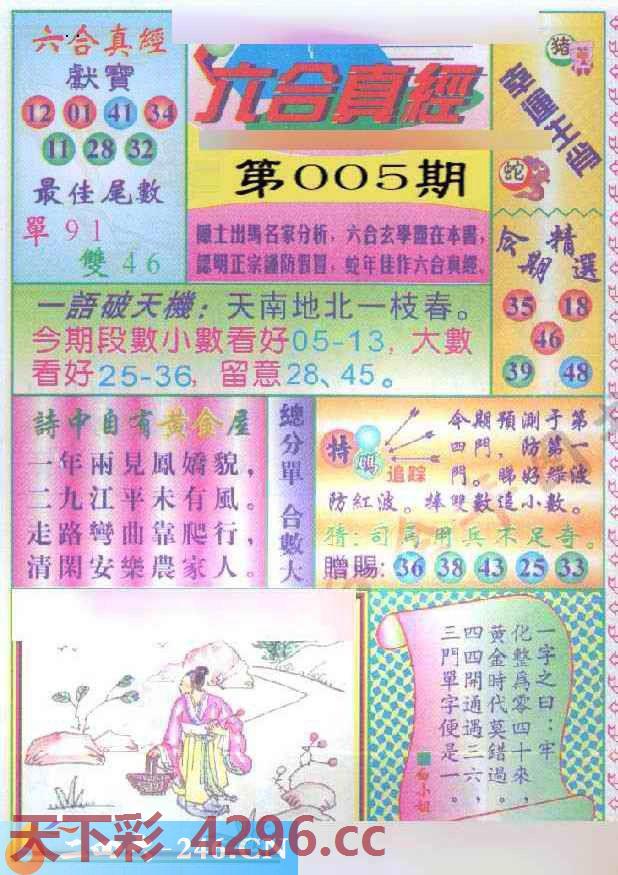 六合真經
獻寶
12 01 41 34
11 28 32
最佳尾數
單 91
雙 46
六合真經
第005期
隱士出馬名家分析，六合玄學盡在本書，
認明正宗謹防假冒，蛇年佳作六合真經。
猪
蛇
今期精選
35 18
46
39 48
一語破天機：天南地北一枝春。
今期段數小數看好05-13，大數
看好25-36，留意28、45。
詩中自有黃金屋
一年兩見鳳嬌貌，
二九江平未有風。
走路彎曲靠爬行，
清閑安樂農家人。
總分單 合數大
特碼
追踪
今期預測于第
四門，防第一
門。睇好綠波
防紅波。捧雙數追小數。
猜：司馬用兵不足奇。
贈賜：36 38 43 25 33
一字之曰：牢
化整爲零四十來，
黃金時代莫錯過。
四四開通遇三六，
三門單字便是一。
白小姐
天下彩 4296.cc
246.CN